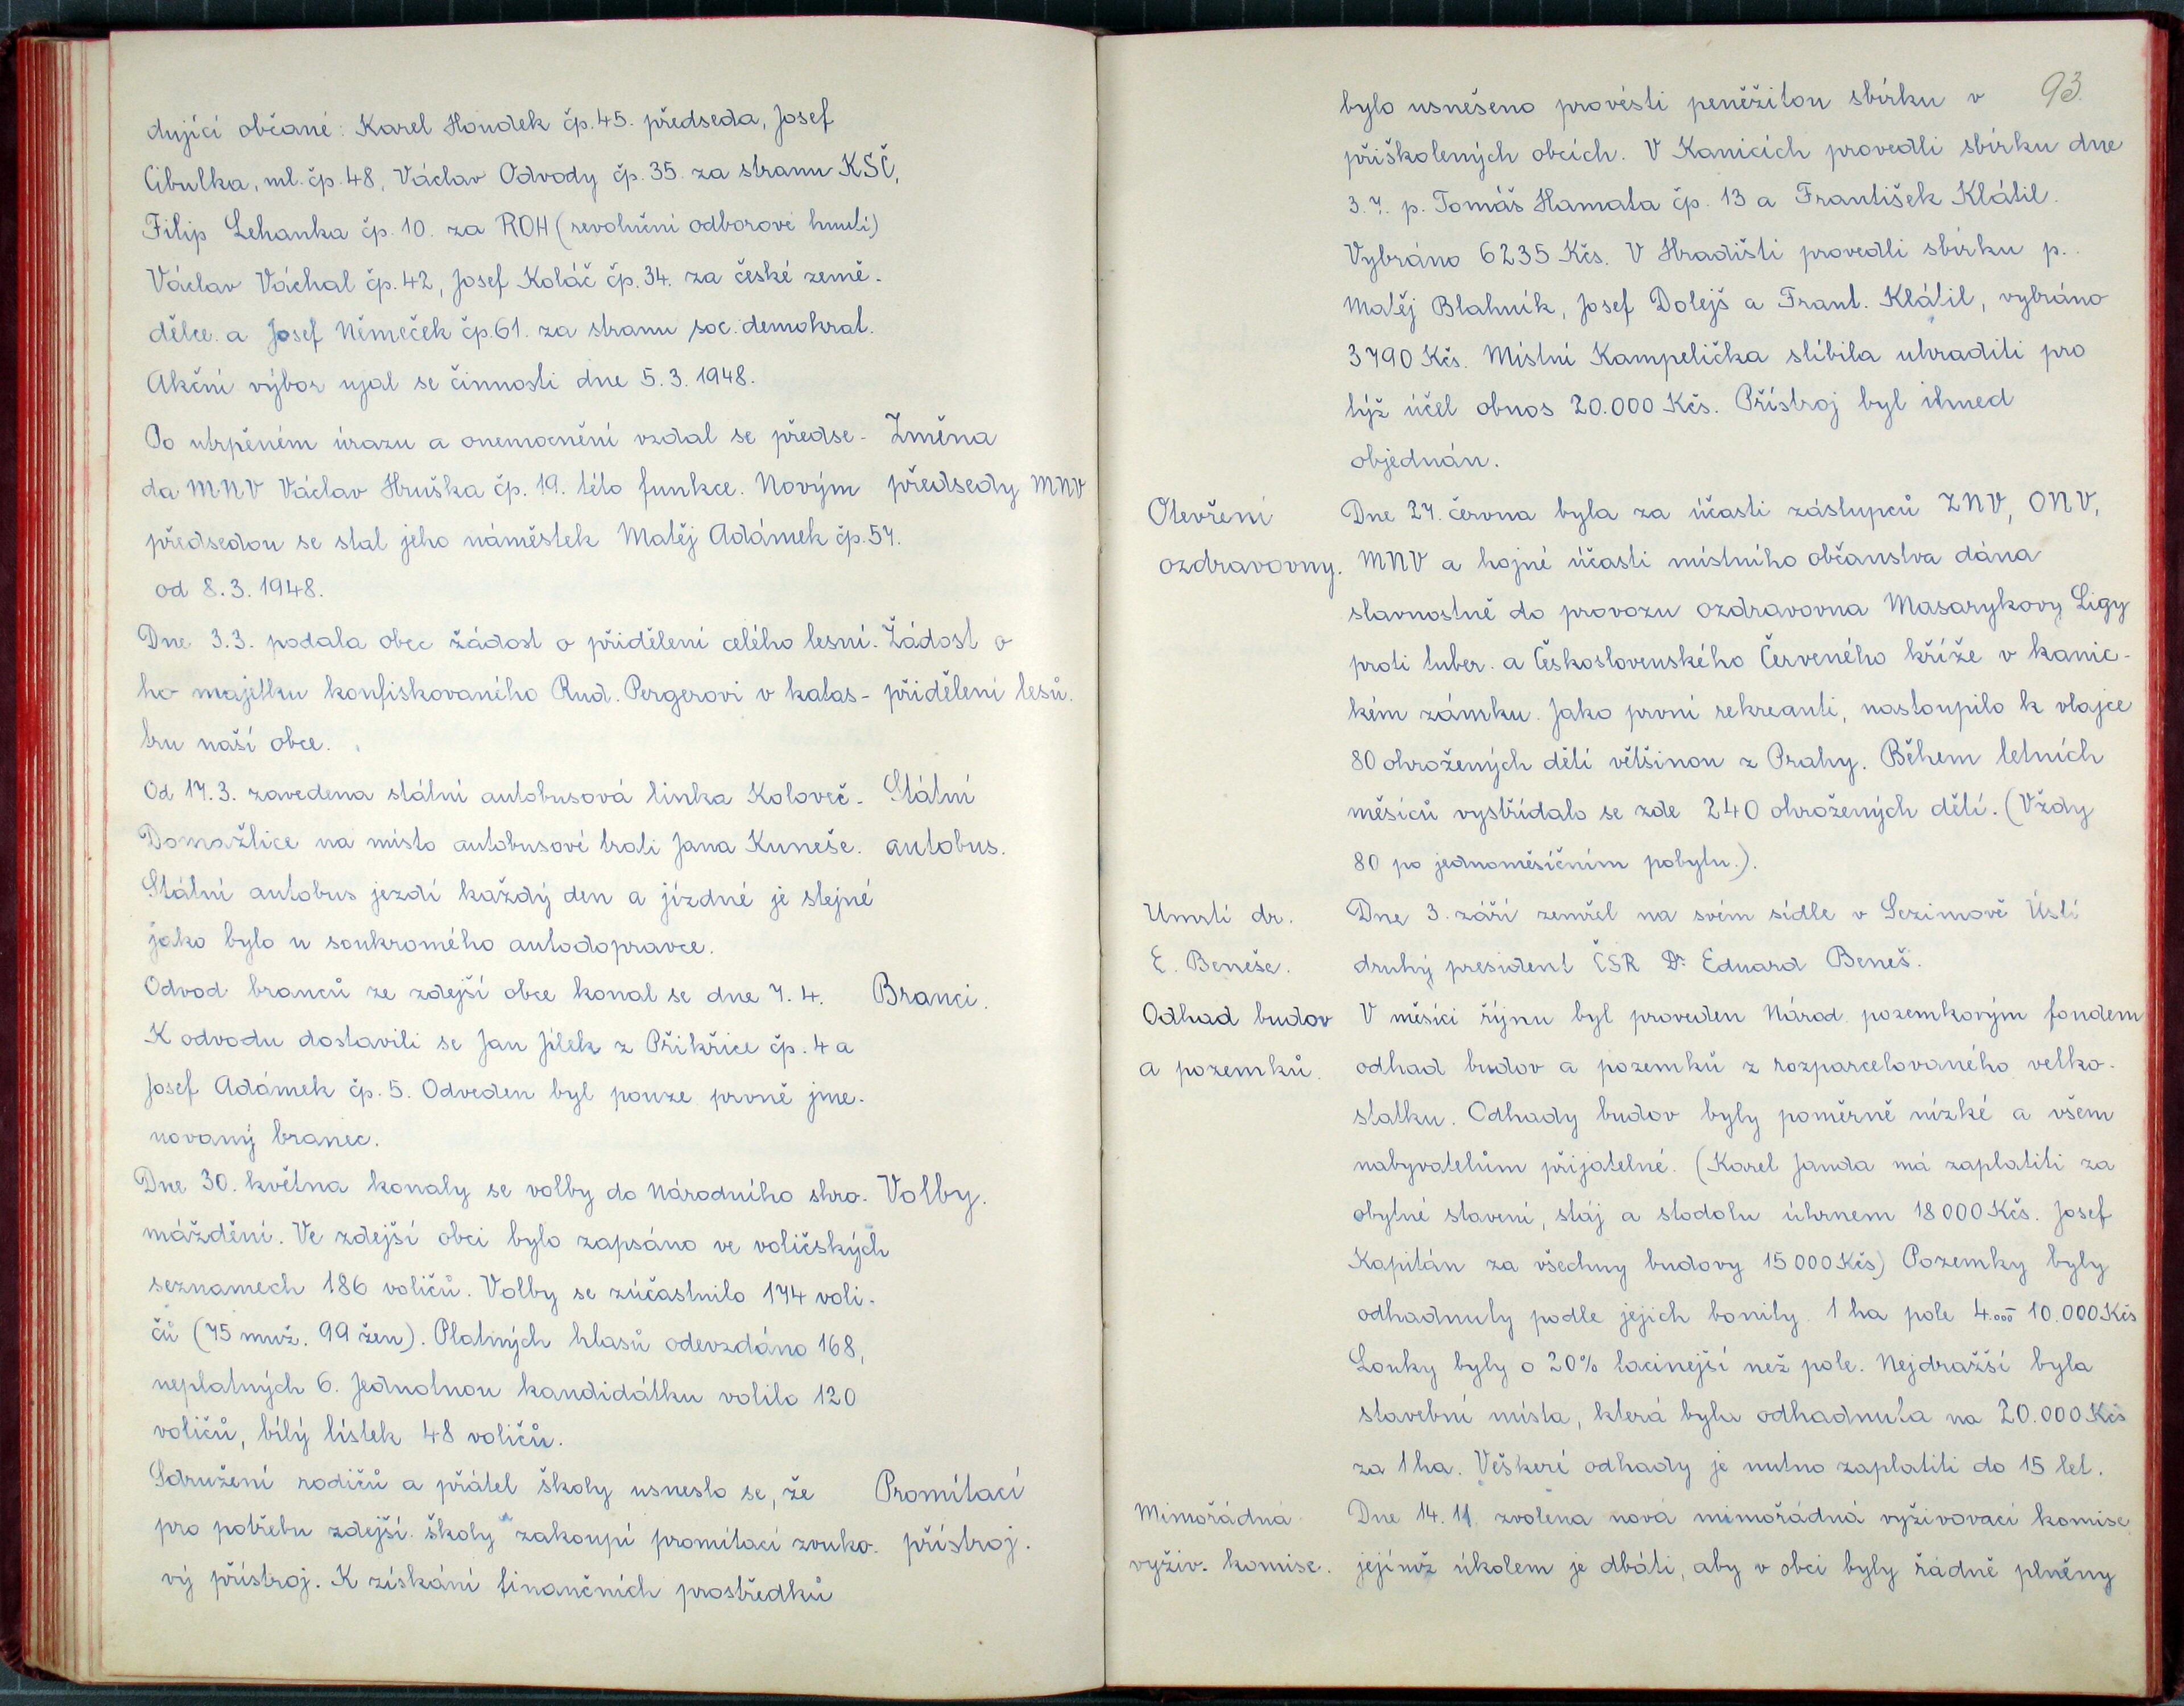 dující občané: Karel Houdek čp. 45. předseda, Josef
Cibulka, ml. čp. 48, Václav Odvody čp. 35. za stranu KSČ,
Filip Lehanka čp. 10. za ROH (revoluční odborové hnutí)
Václav Váchal čp. 42, Josef Koláč čp. 34. za české země-
dělce. a Josef Němeček čp. 61. za stranu soc. demokrat.
Akční výbor ujal se činnosti dne 5. 3. 1948.
Po utrpěném úrazu a onemocnění vzdal se předse- Změna
da MNV Václav Hruška čp. 19. této funkce. Novým předsedy MNV
předsedou se stal jeho náměstek Matěj Adámek čp. 57.
od 8. 3. 1948.
Dne 3.3. podala obec žádost o přidělení celého lesní- Žádost o
ho majetku konfiskovaného Rud. Pergerovi v katas- přidělení lesů.
tru naší obce.
Od 17. 3. zavedena státní autobusová linka Koloveč- Státní
Domažlice na místo autobusové trati Jana Kuneše. autobus.
Státní autobus jezdí každý den a jízdné je stejné
jako bylo u soukromého autodopravce.
Odvod branců ze zdejší obce konal se dne 7. 4. Branci.
K odvodu dostavili se Jan Jílek z Přikřice čp. 4 a
Josef Adámek čp. 5. Odveden byl pouze prvně jme-
novaný branec.
Dne 30. května konaly se volby do Národního shro- Volby.
máždění. Ve zdejší obci bylo zapsáno ve voličských
seznamech 186 voličů. Volby se zúčastnilo 174 voli-
čů (75 muž. 99 žen). Platných hlasů odevzdáno 168,
neplatných 6. Jednotnou kandidátku volilo 120
voličů, bílý lístek 48 voličů.
Sdružení rodičů a přátel školy usneslo se, že Promítací
pro potřebu zdejší školy zakoupí promítací zvuko- přístroj.
vý přístroj. K získání finančních prostředků
93.
bylo usnešeno provésti peněžitou sbírku v
přiškolených obcích. V Kanicích provedli sbírku dne
3. 7. p. Tomáš Hamata čp. 13 a František Klátil.
Vybráno 6235 Kčs. V Hradišti provedli sbírku p.
Matěj Blahník, Josef Dolejš a Frant. Klátil, vybráno
3790 Kčs. Místní Kampelička slíbila uhraditi pro
týž účel obnos 20.000 Kčs. Přístroj byl ihned
objednán.
Otevření Dne 27. června byla za účasti zástupců ZNV, ONV,
ozdravovny. MNV a hojné účasti místního občanstva dána
slavnostně do provozu ozdravovna Masarykovy Ligy
proti tuber. a Československého Červeného kříže v kanic-
kém zámku. Jako první rekreanti, nastoupilo k vlajce
80 ohrožených dětí většinou z Prahy. Během letních
měsíců vystřídalo se zde 240 ohrožených dětí. (Vždy
80 po jednoměsíčním pobytu.).
Úmrtí dr. Dne 3. září zemřel na svém sídle v Sezimově Ústí
E. Beneše. druhý president ČSR Dr. Eduard Beneš.
Odhad budov V měsíci říjnu byl proveden Národ. pozemkovým fondem
a pozemků. odhad budov a pozemků z rozparcelovaného velko-
statku. Odhady budov byly poměrně nízké a všem
nabyvatelům přijatelné. (Karel Janda má zaplatiti za
obytné stavení, stáj a stodolu úhrnem 18000 Kčs. Josef
Kapitán za všechny budovy 15000 Kčs) Pozemky byly
odhadnuty podle jejich bonity. 1 ha pole 4.000 10.000 Kčs
Louky byly o 20% lacinejší než pole. Nejdražší byla
stavební místa, která byla odhadnuta na 20.000 Kčs
za 1 ha. Veškeré odhady je nutno zaplatiti do 15 let.
Mimořádná Dne 14. 11. zvolena nová mimořádná vyživovací komise
vyživ. komise. jejímž úkolem je dbáti, aby v obci byly řádně plněny